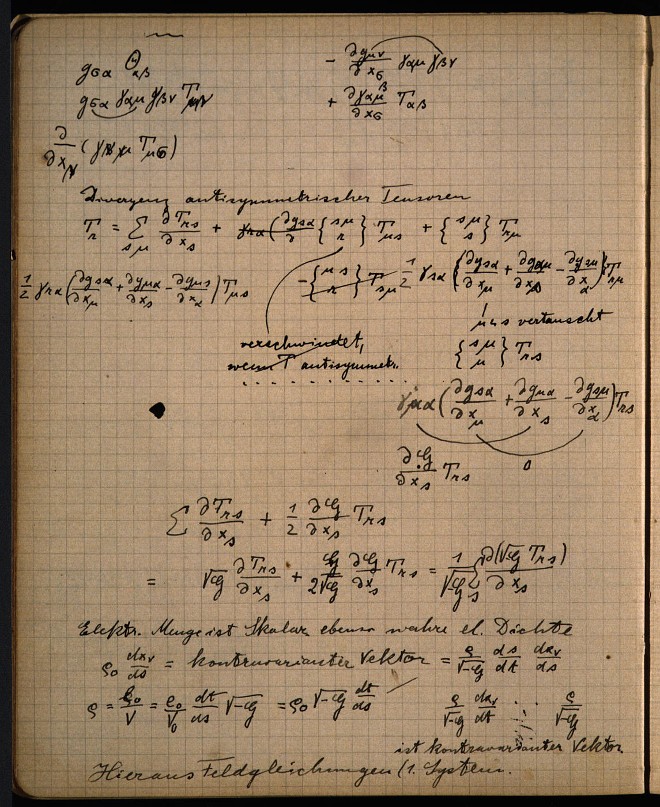 g_{σα} Θ_{αβ}
− ∂g_{μν}/∂x_σ γ_{αμ} γ_{βν}
g_{σα} γ_{αμ} γ_{βν} T_{μν}
+ ∂γ_{αβ}/∂x_σ T_{αβ}
∂/∂x_ν ( T_{μσ})
Divergenz antisymmetrischer Tensoren
T_r = Σ_{sμ} ∂T_{rs}/∂x_s + {sμ r} T_{μs} + {sμ s} T_{rμ}
1/2 γ_{rα} (∂g_{sα}/∂x_μ + ∂g_{μα}/∂x_s − ∂g_{μs}/∂x_α) T_{μs}
− {μs r} T_{sμ}
1/2 γ_{sα} {∂g_{sα}/∂x_μ + ∂g_{αμ}/∂x_s − ∂g_{sμ}/∂x_α} T_{rμ}
μ u s vertauscht
verschwindet,
{sμ μ} T_{rs}
wenn T antisymmetr.
γ_{μα} (∂g_{sα}/∂x_μ + ∂g_{μα}/∂x_s − ∂g_{sμ}/∂x_α) T_{rs}
0
∂lg G/∂x_s T_{rs}
Σ ∂T_{rs}/∂x_s + 1/2 ∂lg G/∂x_s T_{rs}
= √G ∂T_{rs}/∂x_s + 1/(2√G) ∂G/∂x_s T_{rs} = 1/√G Σ_s ∂(√G T_{rs})/∂x_s
Elektr. Menge ist Skalar ebenso wahre el. Dichte
ρ_0 dx_ν/ds = kontravarianter Vektor = ρ/√−G ds/dt dx_ν/ds
ρ = /V = ρ_0/V_0 dt/ds √−G = ρ_0 √−G dt/ds
ρ/√−G dx_ν/dt ... ρ/√−G
ist kontravarianter Vektor.
Hieraus Feldgleichungen (1. System.